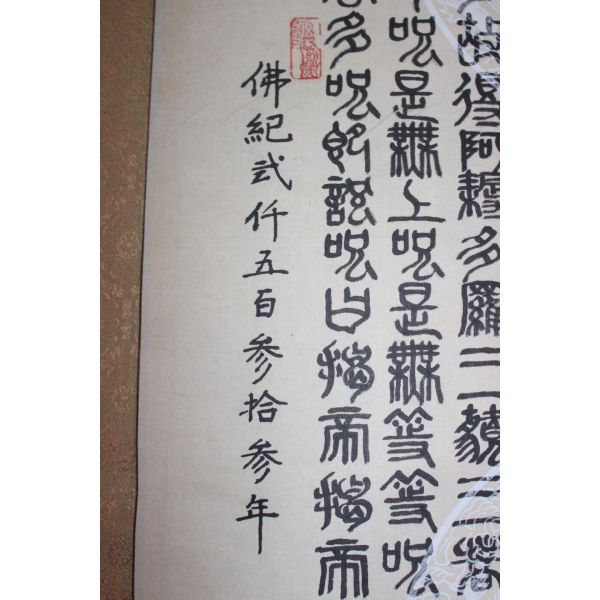 故得阿耨多羅三藐三菩
呪是無上呪是無等等呪
多呪即說呪曰揭帝揭帝
佛紀弍仟五百参拾参年